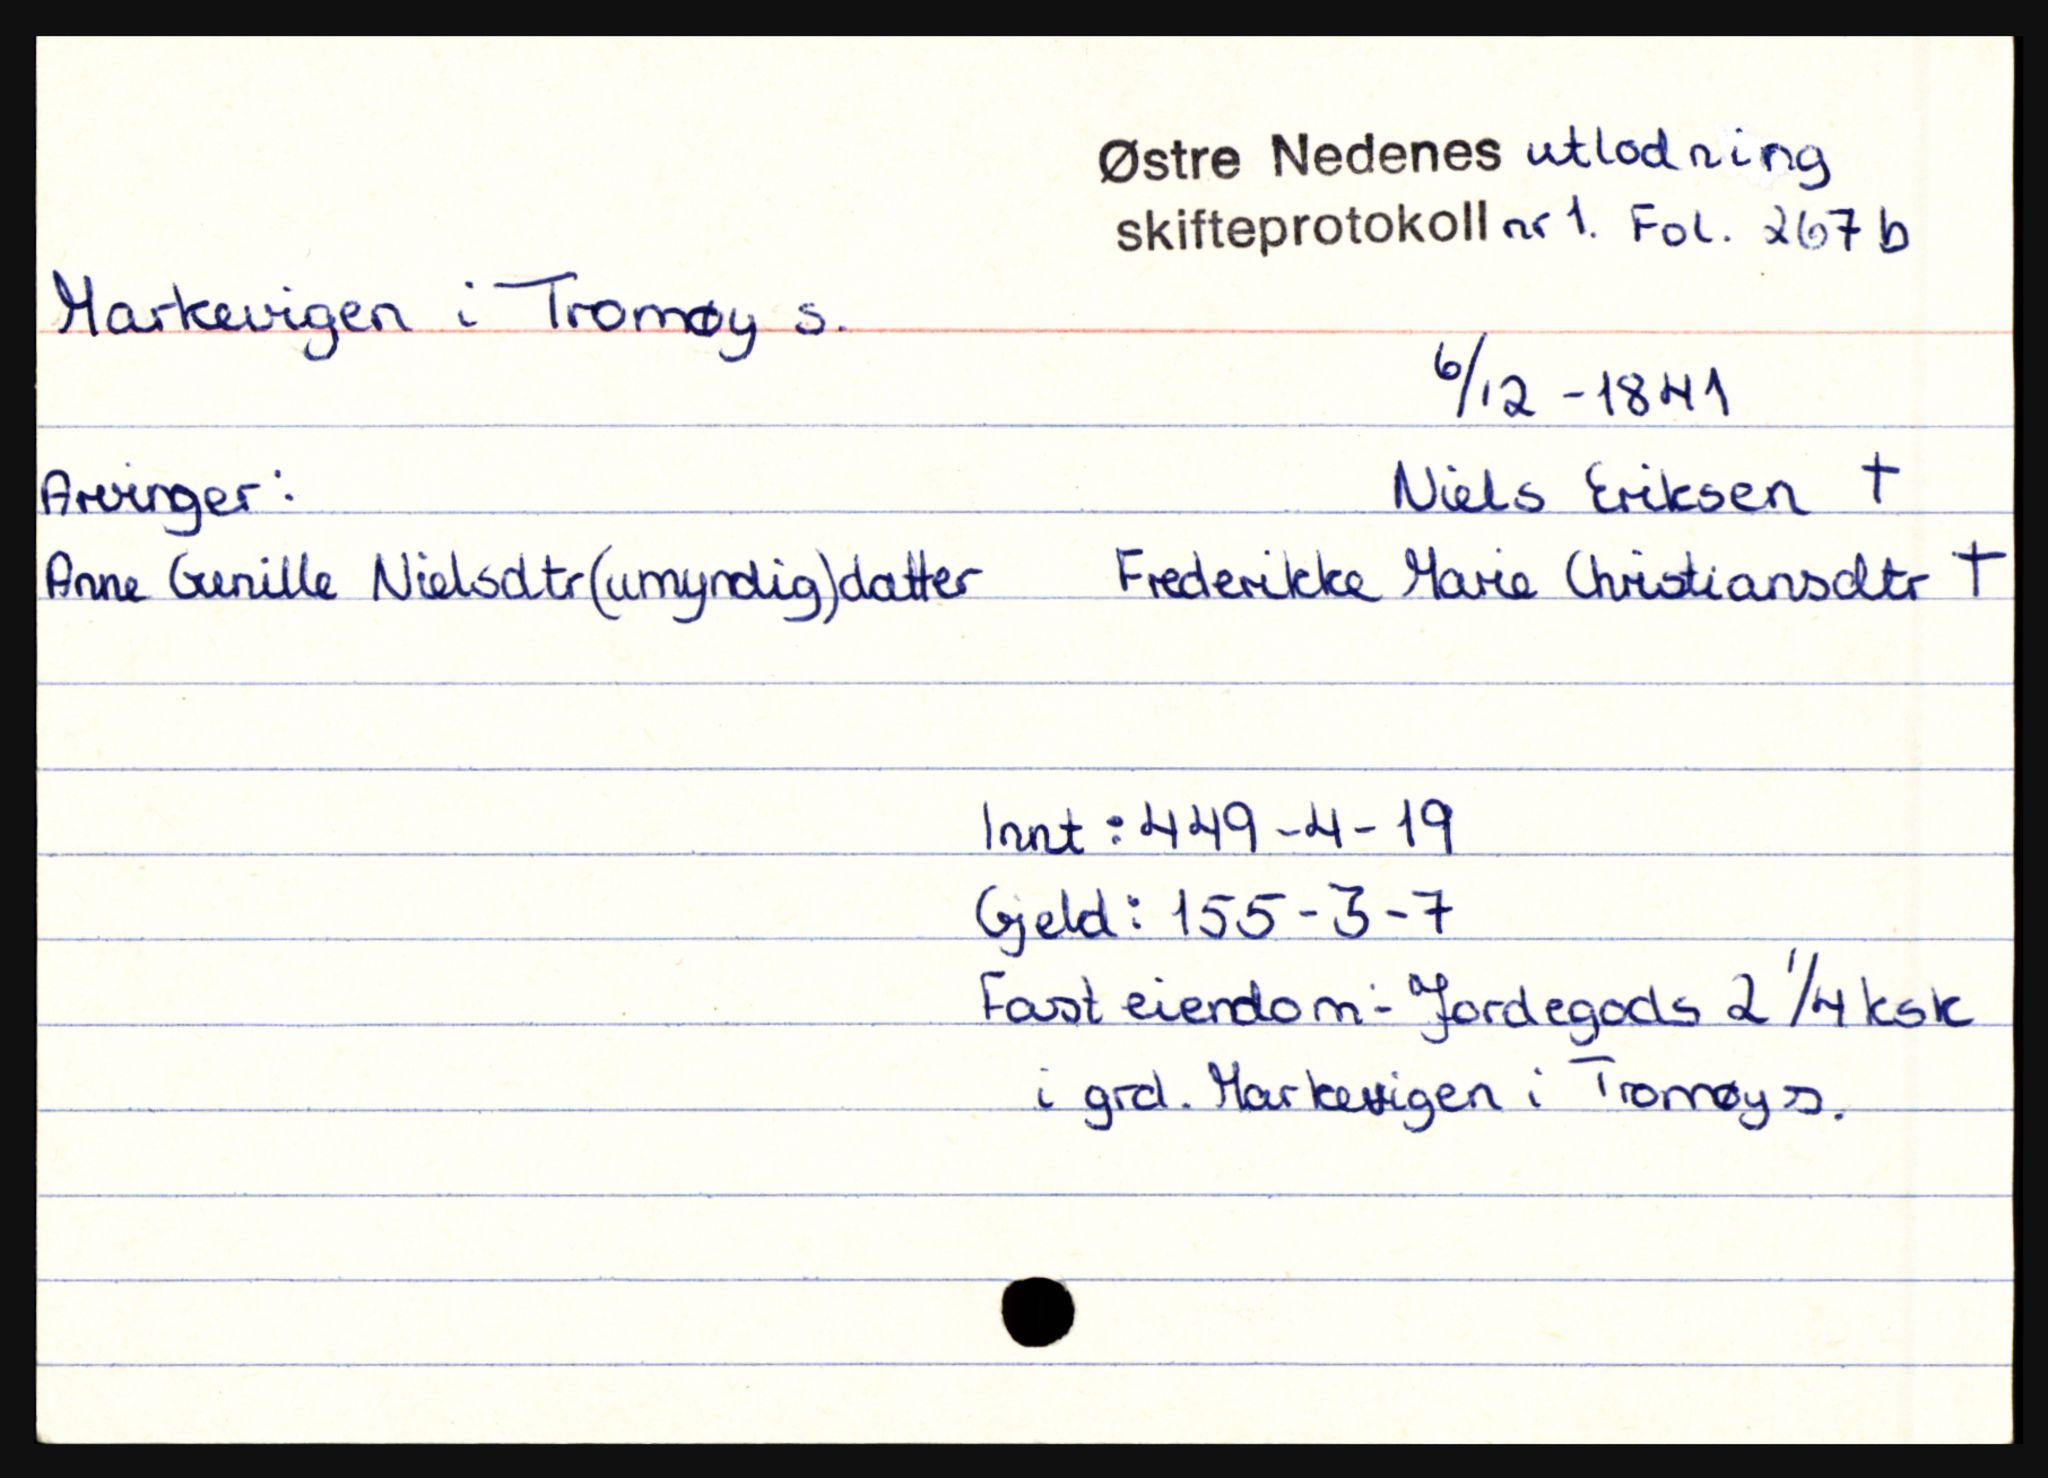 Østre Nedenes utlodning
skifteprotokoll nr 1. Fol. 267 b
Markevigen i Tromøy s.
6/12 - 1841
Arvinger: Niels Eriksen †
Anne Gunille Nielsdtr (umyndig) datter Frederikke Marie Christiansdtr †
Innt: 449-4-19
Gjeld: 155-3-7
Fast eiendom:- Jordegods 2 1/4 ksk
i grd. Markevigen i Tromøy s.